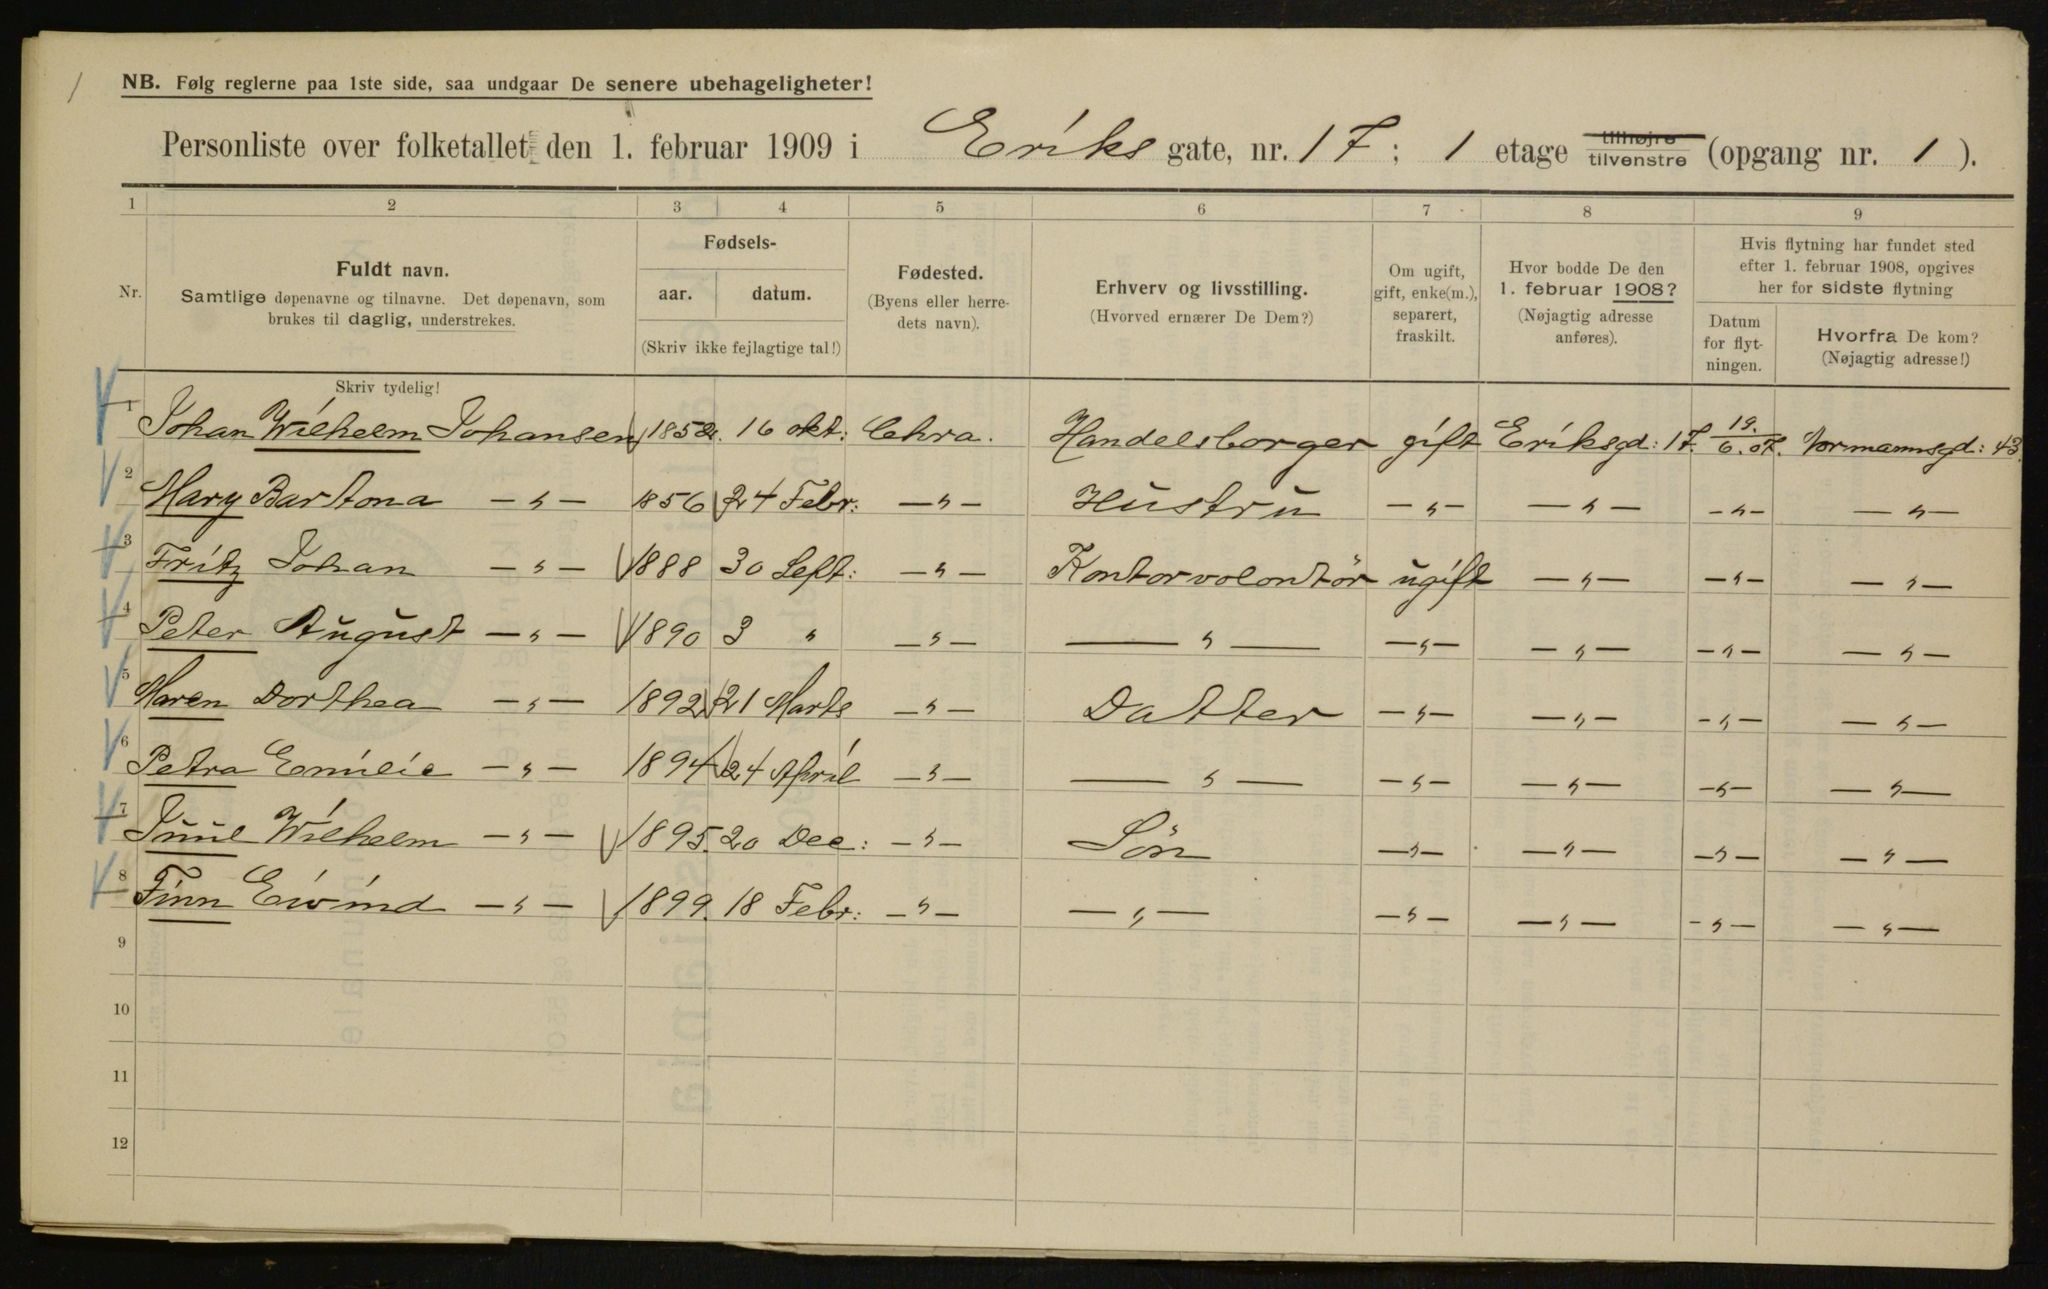 1
NB. Følg reglerne paa 1ste side, saa undgaar De senere ubehageligheter!
Personliste over folketallet den 1. februar 1909 i Eriks gate, nr. 17; 1 etage tilhøjre tilvenstre (opgang nr. 1).
1 2 3 4 5 6 7 8 9
Nr. Fuldt navn. Samtlige døpenavne og tilnavne. Det døpenavn, som brukes til daglig, understrekes. Skriv tydelig!
Fødsels- aar. datum. (Skriv ikke fejlagtige tal!)
Fødested. (Byens eller herredets navn).
Erhverv og livsstilling. (Hvorved ernærer De Dem?)
Om ugift, gift, enke(m.), separert, fraskilt.
Hvor bodde De den 1. februar 1908? (Nøjagtig adresse anføres).
Hvis flytning har fundet sted efter 1. februar 1908, opgives her for sidste flytning
Datum for flytningen. Hvorfra De kom? (Nøjagtig adresse!)
1 Johan Wilhelm Johansen 1852. 16 okt: Chra. Handelsborger gift Eriksgd: 17. 19. 6. 07. Normannsgd: 43.
2 Mary Bartona — " — 1856 24 Febr: — " — Hustru — " — — " — — " — — " —
3 Fritz Johan — " — 1888 30 Sept: — " — Kontorvolontör ugift — " — — " — — " —
4 Peter August — " — 1890 3 " — " — — " — — " — — " — — " — — " —
5 Maren Dorthea — " — 1892 21 Marts — " — Datter — " — — " — — " — — " —
6 Petra Emilie — " — 1894 24 April — " — — " — — " — — " — — " — — " —
7 Juul Wilhelm — " — 1895. 20 Dec: — " — Sön — " — — " — — " — — " —
8 Finn Eivind — " — 1899. 18 Febr: — " — — " — — " — — " — — " — — " —
9
10
11
12